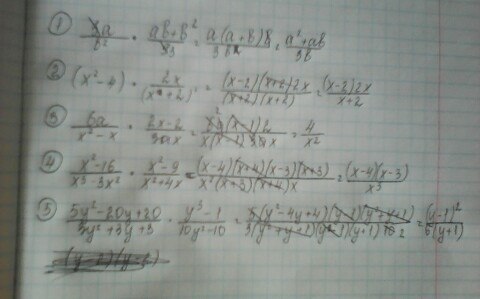 ① 8a/b² · ab+b²/33 = a(a+b)8/3b² = a²+ab/3b
② (x²-4) · 2x/(x+2)² = (x-2)(x+2)2x/(x+2)(x+2) = (x-2)2x/x+2
③ 6a/x²-x · 2x-2/3ax = 2(x-1)2/x(x-1)3ax = 4/x²
④ x²-16/x³-3x² · x²-9/x²+4x = (x-4)(x+4)(x-3)(x+3)/x²(x+3)(x+4)x = (x-4)(x-3)/x³
⑤ 5y²-20y+20/3y²+3y+3 · y³-1/10y²-10 = 5(y²-4y+4)(y-1)(y²+y+1)/3(y²+y+1)(y-1)(y+1)10 2 = (y-1)²/6(y+1)